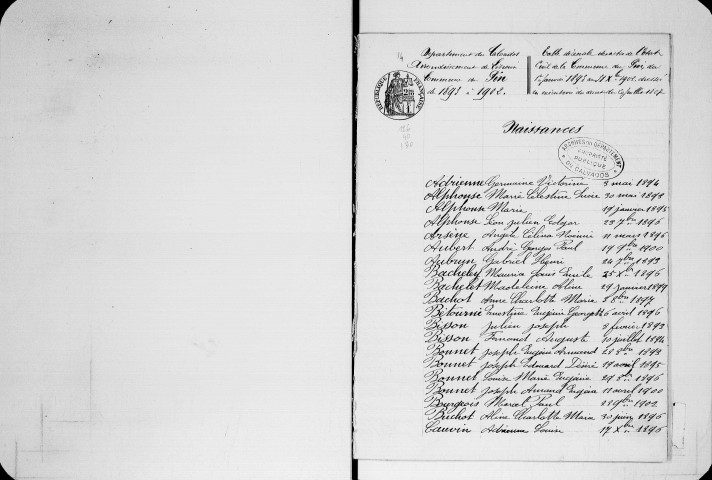 Département du Calvados
Arrondissement de Lisieux
Commune du Pin
de 1893 à 1902.
Table décennale des actes de l'Etat
Civil de la Commune du Pin, du
1er janvier 1893 au 31 Xbre 1902, dressée
en exécution du décret du 20 juillet 1807
RÉPUBLIQUE FRANÇAISE
Naissances
ARCHIVES DU DÉPARTEMENT
PROPRIÉTÉ
PUBLIQUE
DU CALVADOS
Adrienne Germaine Victorine 3 mai 1894
Alphonse Marie Célestine Lucie 30 mai 1898
Alphonse Marie 19 janvier 1895
Alphonse Léon Julien Edgar 23 7bre 1896
Arsène Angèle Célina Noémie 11 mars 1896
Aubert André Georges Paul 19 9bre 1900
Aubrun Gabriel Henri 24 9bre 1893
Bacheley Maurice Louis Emile 25 Xbre 1896
Bachelet Madeleine Aline 29 janvier 1899
Bachot Anne Charlotte Marie 8 8bre 1897
Bétourné Ernestine Eugénie Georgette 6 avril 1896
Bisson Julien Joseph 8 février 1893
Bisson Fernand Auguste 10 juillet 1894
Bonnet Joseph Eugène Armand 28 8bre 1893
Bonnet Joseph Edouard Désiré 19 avril 1895
Bonnet Louise Marie Eugénie 29 8bre 1896
Bonnet Joseph Armand Eugène 11 avril 1900
Bourgeois Marcel Paul 23 9bre 1902
Buchot Aline Charlotte Marie 30 juin 1896
Cauvin Adrienne Louise 17 Xbre 1896